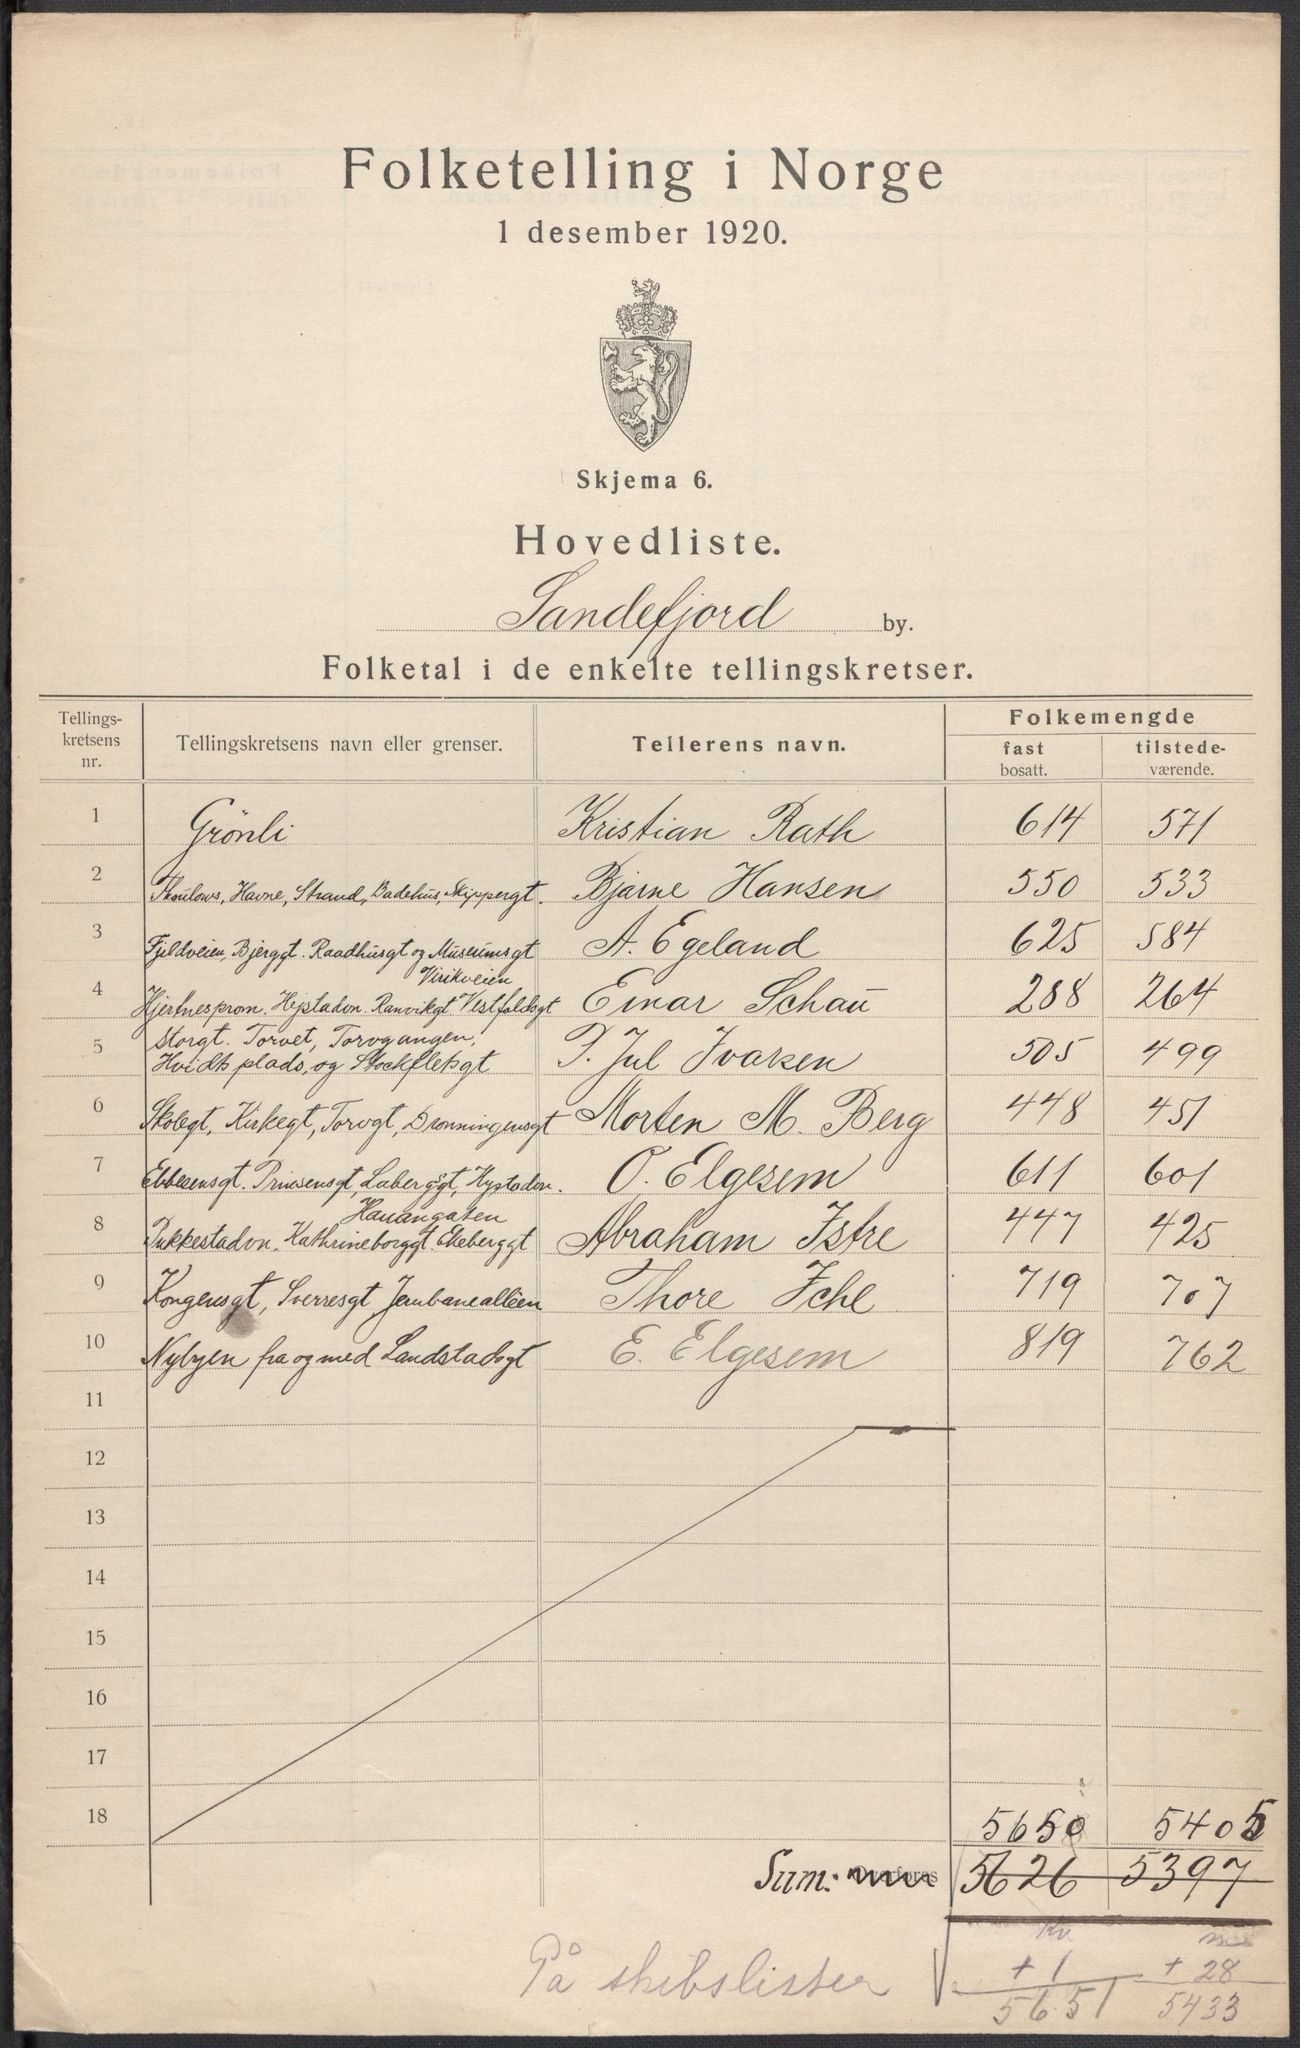 Folketelling i Norge
1 desember 1920.
Skjema 6.
Hovedliste.
Sandefjord by.
Folketal i de enkelte tellingskretser.
Tellings-kretsens nr. Tellingskretsens navn eller grenser. Tellerens navn. Folkemengde
fast bosatt. tilstede-værende.
1 Grönli Kristian Rath 614 571
2 Thoulows, Havne, Strand, Badehus, Skippergt. Bjarne Hansen 550 533
3 Fjeldveien, Bjerggt. Raadhusgt og Museumsgt A. Egeland 625 584
Virikveien
4 Hjertnesprom. Hejstadvn. Ranvikgt Vestfoldsgt Einar Schau 288 264
Storgt. Torvet, Torvgangen,
5 Hvidts plads, og Stockfletsgt P. Jul Ivarsen 505 499
6 Skolegt, Kirkegt, Torvgt, Dronningensgt Morten M. Berg 448 451
7 Ebbesensgt. Prinsensgt, Laberggt, Hystadvn. O. Elgesem 611 601
Hauangaten
8 Pukkestadvn. Kathrineborggt. Ekeberggt Abraham Istre 447 425
9 Kongensgt, Sverresgt Jernbanealléen Thore 719 707
10 Nybyen fra og med Landstadsgt E. Elgesem 819 762
11
12
13
14
15
16
17
18
5650 5405
Sum: Overføres 5626 5397
På skibslister + 1 + 28
5651 5433